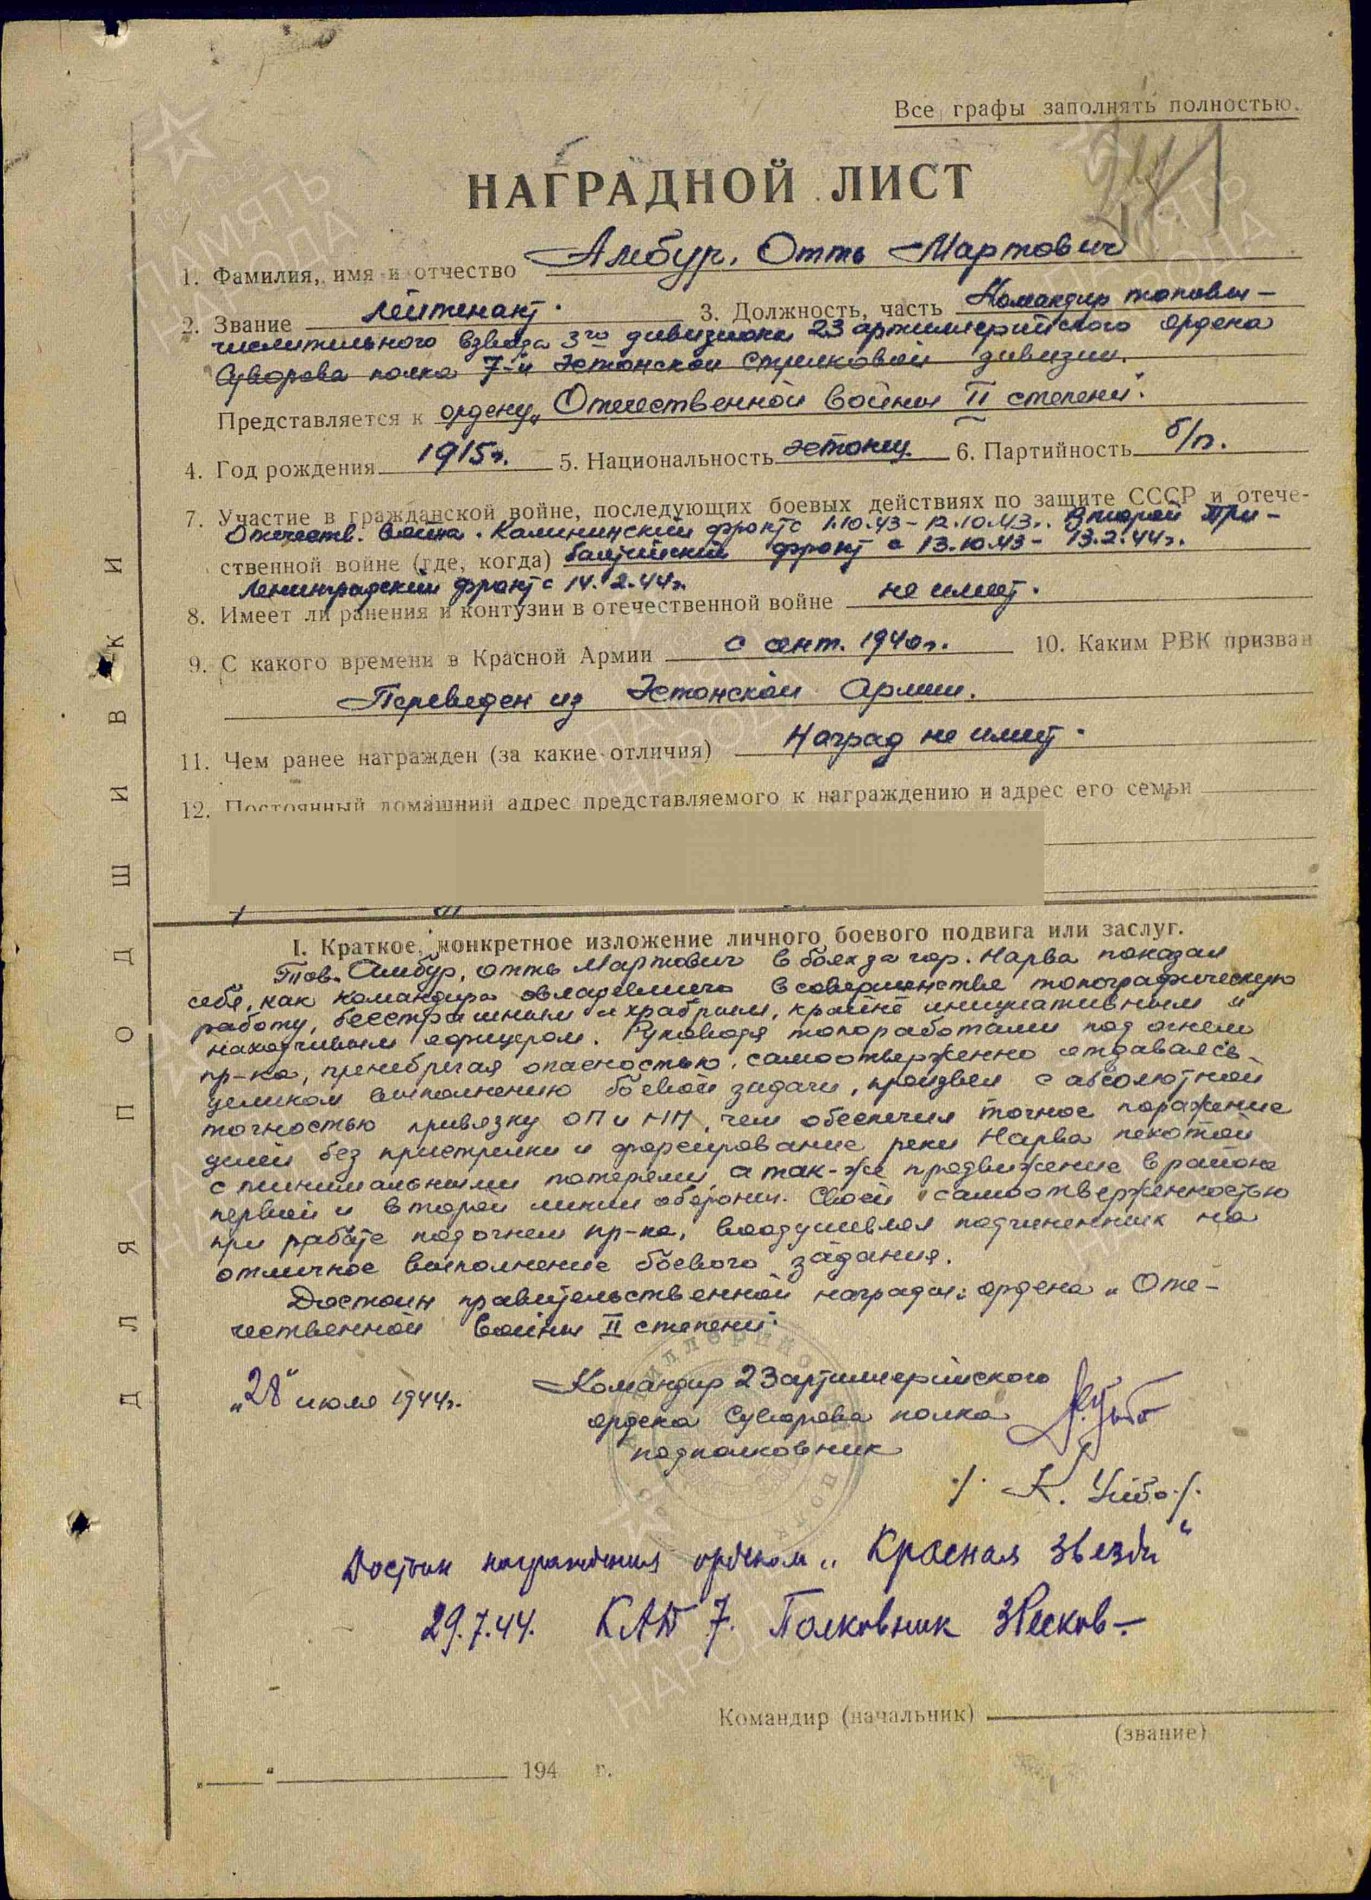 Все графы заполнять полностью.
НАГРАДНОЙ ЛИСТ
1. Фамилия, имя и отчество Амбур, Отть Мартович
2. Звание лейтенант. 3. Должность, часть Командир топовы-
числительного взвода 3го дивизиона 23 артиллерийского ордена
Суворова полка 7-й Эстонской Стрелковой дивизии.
Представляется к ордену „Отечественной войны II степени".
4. Год рождения 1915г. 5. Национальность эстонец. 6. Партийность б/п.
7. Участие в гражданской войне, последующих боевых действиях по защите СССР и отече-
Отечеств. война. Калининский фронт с 1.10.43 - 12.10.43г. Второй При-
ственной войне (где, когда) балтийский фронт с 13.10.43 - 13.2.44г.
Ленинградский фронт с 14.2.44г.
8. Имеет ли ранения и контузии в отечественной войне не имеет.
9. С какого времени в Красной Армии с сент. 1940г. 10. Каким РВК призван
Переведен из Эстонской Армии.
11. Чем ранее награжден (за какие отличия) Наград не имеет.
12. Постоянный домашний адрес представляемого к награждению и адрес его семьи
I. Краткое, конкретное изложение личного боевого подвига или заслуг.
Тов. Амбур, Отть Мартович в боях за гор. Нарва показал
себя, как командира овладевшего в совершенстве топографическую
работу, бесстрашным и храбрым, крайне инициативным и
находчивым офицером. Руководя топоработами под огнем
пр-ка, пренебрегая опасностью, самоотверженно отдаваясь
целиком выполнению боевой задачи, произвел с абсолютной
точностью привязку ОП и НП, чем обеспечил точное поражение
целей без пристрелки и форсирование реки Нарва пехотой
с минимальными потерями, а так-же продвижение в районе
первой и второй линии обороны. Своей самоотверженностью
при работе под огнем пр-ка, воодушевлял подчиненных на
отличное выполнение боевого задания.
Достоин правительственной награды: ордена „Оте-
чественной войны II степени".
„28" июля 1944г. Командир 23 артиллерийского
ордена Суворова полка
подполковник
/К. Уйбо./
Достоин награждения орденом „Красная Звезда"
29.7.44. КАД 7. Полковник
Командир (начальник)
(звание)
„ " 194 г.
ДЛЯ ПОДШИВКИ
ПАМЯТЬ
НАРОДА